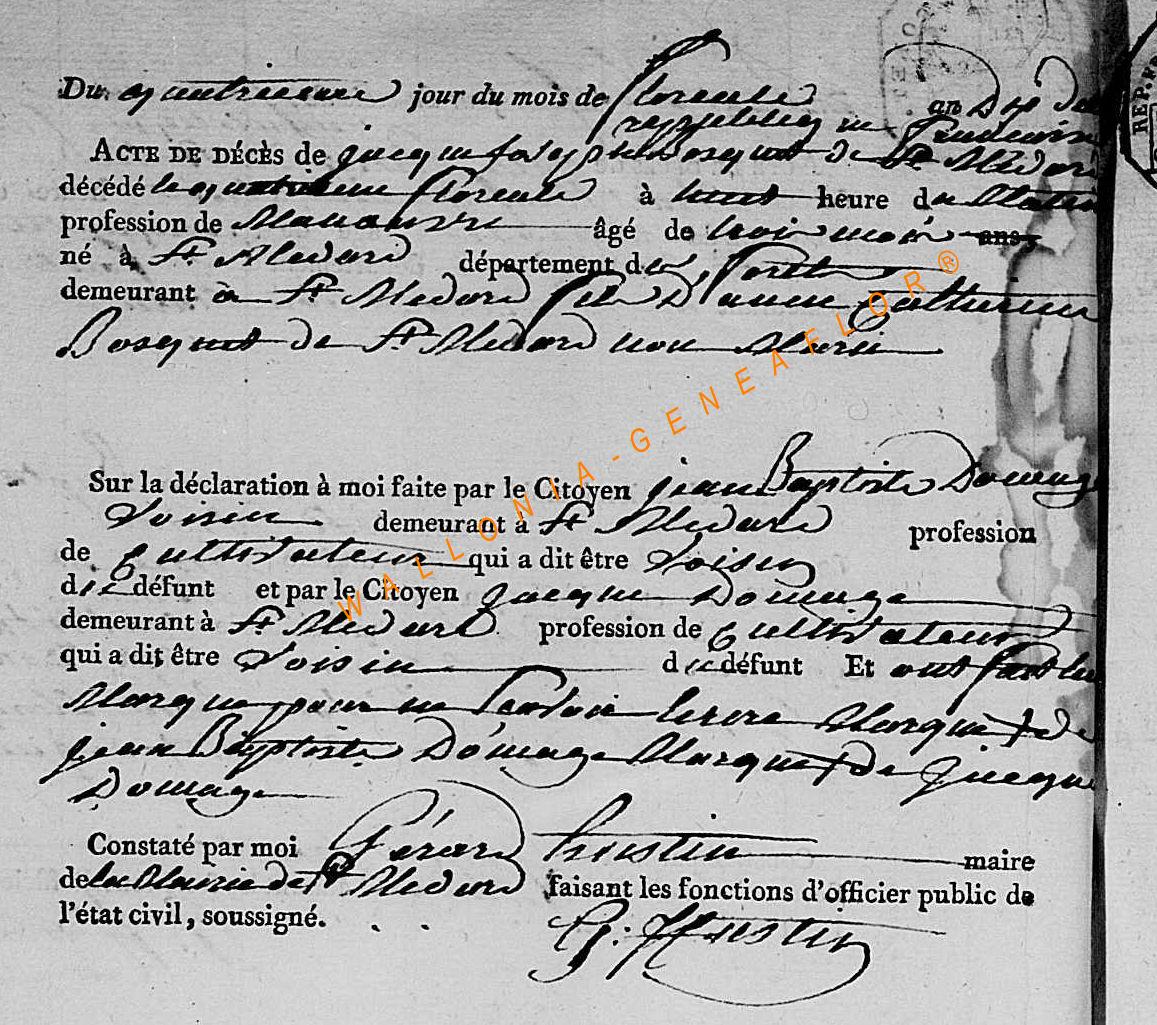 Du quatrieme jour du mois de floreale an Dix de
republiq
ACTE DE DÉCÈS de jacque joseph Bosquet de St Medard
décédé le quatrieme floreale à huit heure du Matin
profession de Manauvre âgé de trois mois ans
né à St Medard département des forets
demeurant à St Medard fils D'anne Catherine
Bosquet de St Medard non Marie
Sur la déclaration à moi faite par le Citoyen jean Baptiste Domage
Voisin demeurant à St Medard profession
de Cultivateur qui a dit être Voisin
du défunt et par le Citoyen jacque Domage
demeurant à St Medard profession de Cultivateur
qui a dit être Voisin du défunt Et ont fait leu
Marque pour ne savoir Marque + de
jean Baptiste Domage Marque + de Jacque
Domage
Constaté par moi Gérard hustin maire
de la Mairie de St Medard faisant les fonctions d'officier public de
l'état civil, soussigné.
G: Hustin
WALLONIA-GENEAFLOR®
REP.FR